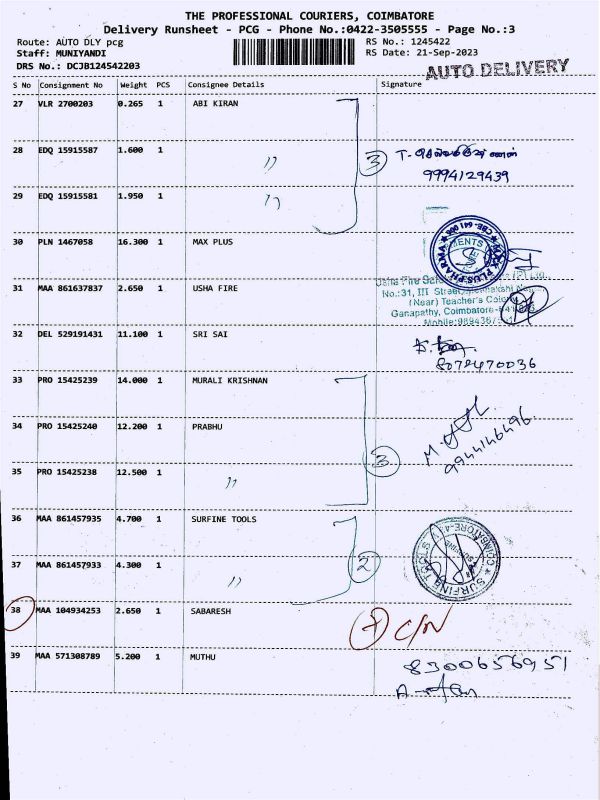 THE PROFESSIONAL COURIERS, COIMBATORE
Delivery Runsheet - PCG - Phone No.:0422-3505555 - Page No.:3
Route: AUTO DLY pcg RS No.: 1245422
Staff: MUNIYANDI RS Date: 21-Sep-2023
DRS No.: DCJB124542203
AUTO DELIVERY
S No Consignment No Weight PCS Consignee Details Signature
27 VLR 2700203 0.265 1 ABI KIRAN
28 EDQ 15915587 1.600 1 〃 3 T-
9994129439
29 EDQ 15915581 1.950 1 〃
30 PLN 1467058 16.300 1 MAX PLUS
CBE- 641 006
31 MAA 861637837 2.650 1 USHA FIRE
Usha Fire
No.:31, III Street,
(Near) Teacher's Colony
Ganapathy, Coimbatore-
32 DEL 529191431 11.100 1 SRI SAI
8072470036
33 PRO 15425239 14.000 1 MURALI KRISHNAN
34 PRO 15425240 12.200 1 PRABHU
9944146496
35 PRO 15425238 12.500 1 〃 3
36 MAA 861457935 4.700 1 SURFINE TOOLS
37 MAA 861457933 4.300 1 〃 2
38 MAA 104934253 2.650 1 SABARESH C/N
39 MAA 571308789 5.200 1 MUTHU 8300656951